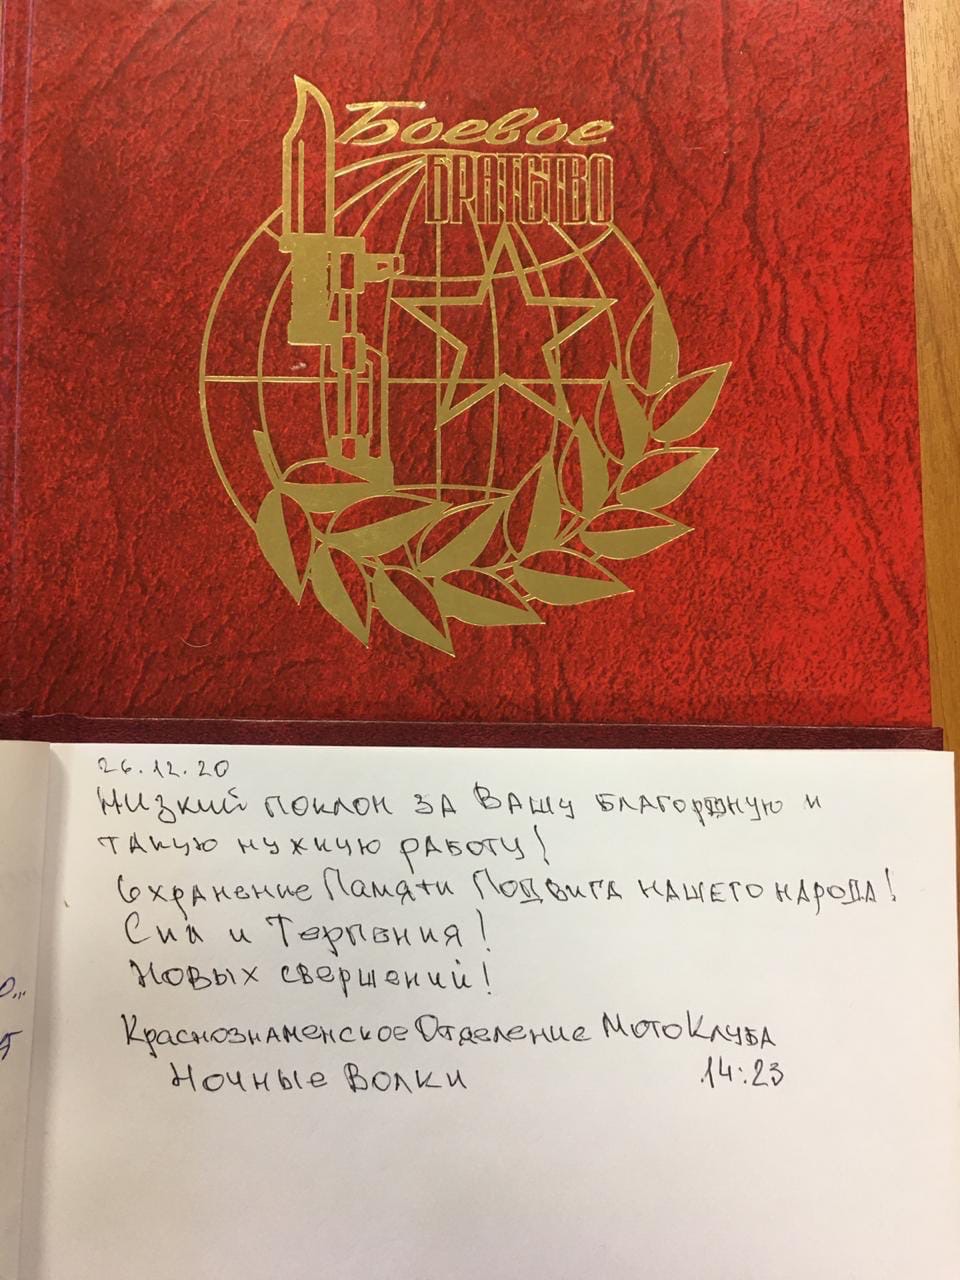 Боевое
БРАТСТВО
26.12.20
Низкий поклон за Вашу благородную и
такую нужную работу!
Сохранение Памяти Подвига нашего народа!
Сил и Терпения!
Новых свершений!
Краснознаменское Отделение МотоКлуба
Ночные Волки 14:23